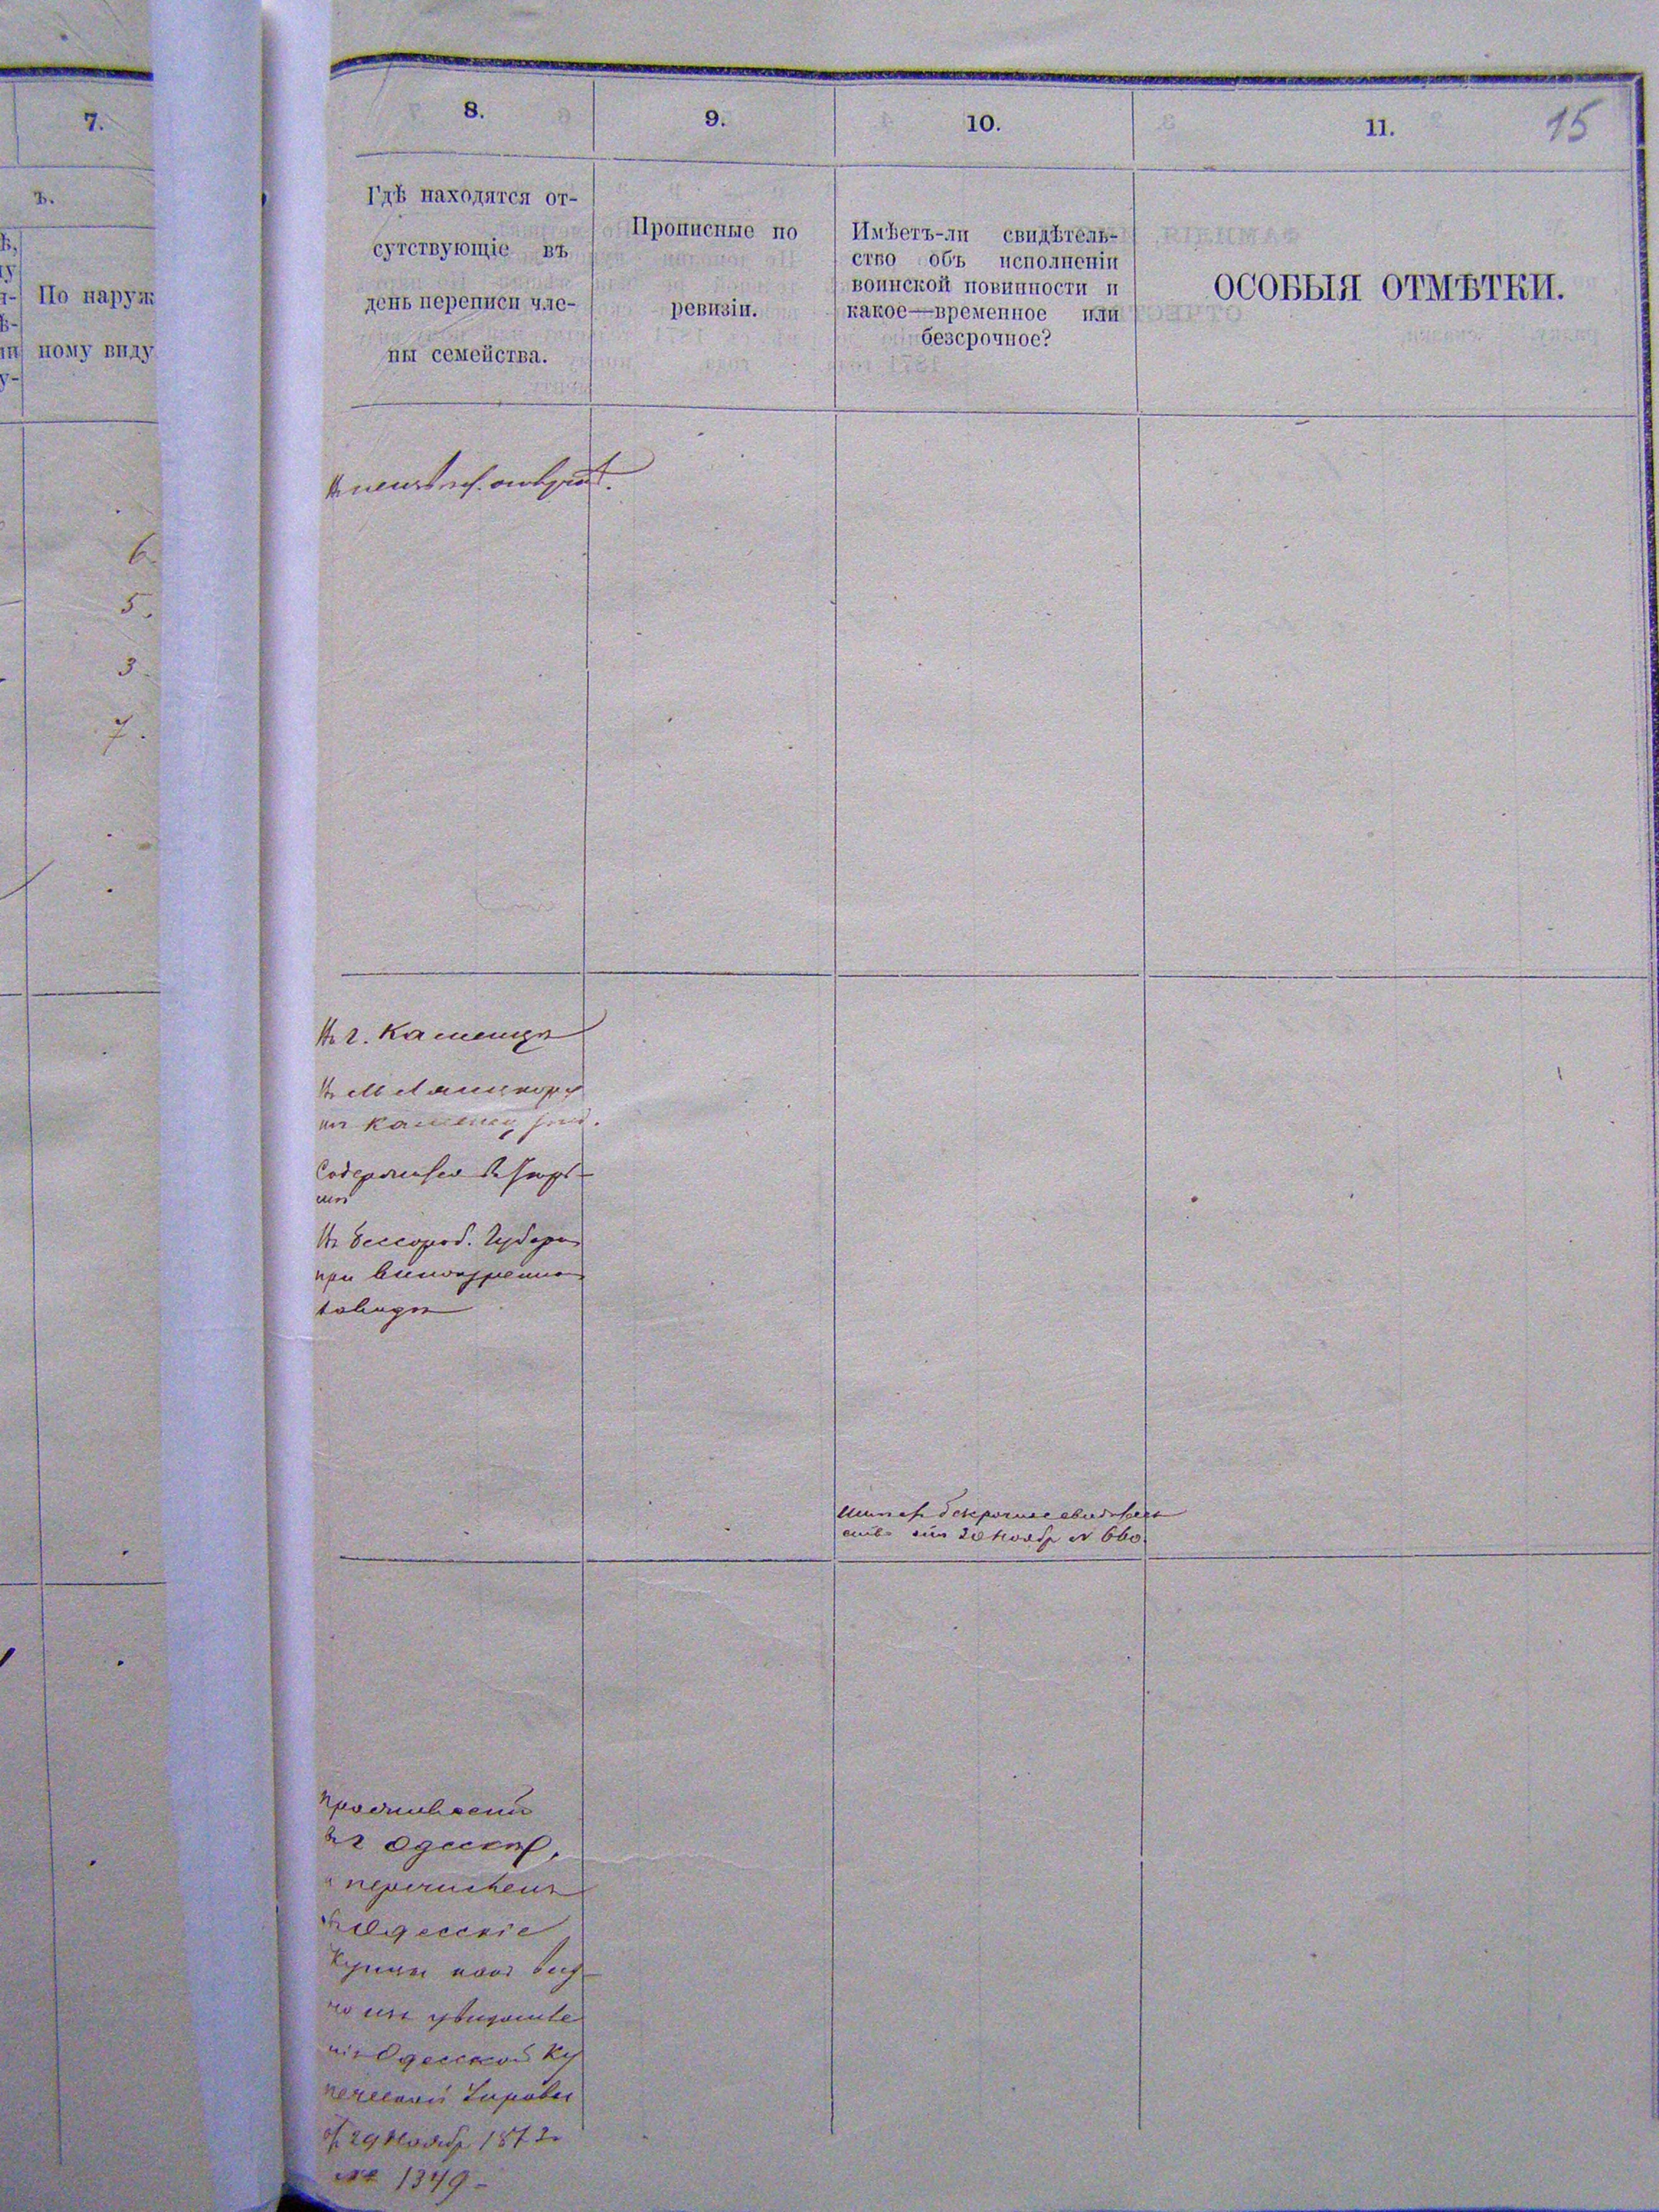 7.
ъ.
По наруж
ному виду
6.
5.
3.
7.
8.
9.
10.
11.
15
Гдѣ находятся от-
сутствующіе въ
день переписи чле-
ны семейства.
Прописные по
ревизіи.
Имѣетъ-ли свидѣтель-
ство объ исполненіи
воинской повинности и
какое—временное или
безсрочное?
ОСОБЫЯ ОТМѢТКИ.
Въ г. Каменцѣ
въ Каменец
Содержится въ тюрь-
мѣ
Въ Бессараб. Губерн
при винокуренно
заводѣ
Имѣет безсрочное свидѣтель
ство 20 Ноябр N 660.
Проживаетъ
въ г Одессѣ,
и перечисленъ
въ Одесскіе
Купцы какъ вид-
но изъ увѣдомле
нія Одесской Ку
печеской Управы
от 29 Ноябр 1873
№ 1349 -